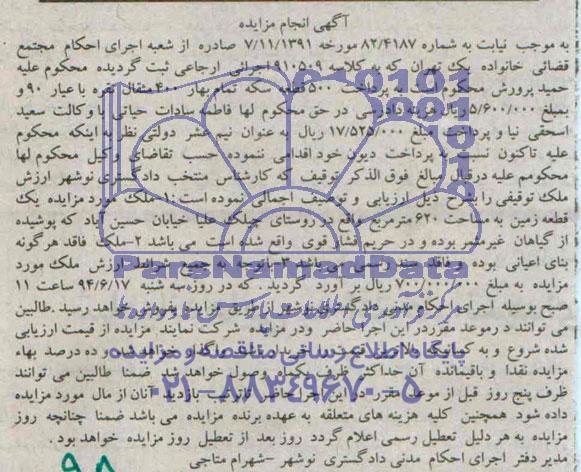 آگهی انجام مزایده
به موجب نیابت به شماره ۸۲/۴۱۸۷ مورخه ۷/۱۱/۱۳۹۱ صادره از شعبه اجرای احکام مجتمع
قضائی خانواده یک تهران که به کلاسه ۹۱۰۵۰۹ اجرائی ارجاعی ثبت گردیده محکوم علیه
حمید پرورش محکوم است به پرداخت ۵۰۰ قطعه سکه تمام بهار ۴۰۰ مثقال نقره با عیار ۹۰ و
بمبلغ ۵/۶۰۰/۰۰۰ ریال هزینه دادرسی در حق محکوم لها فاطمه سادات حیاتی با وکالت سعید
اسحقی نیا و پرداخت مبلغ ۱۷/۵۲۵/۰۰۰ ریال به عنوان نیم عشر دولتی نظر به اینکه محکوم
علیه تاکنون نسبت به پرداخت دیون خود اقدامی ننموده حسب تقاضای وکیل محکوم لها
محکومم علیه در قبال مبالغ فوق الذکر توقیف که کارشناس منتخب دادگستری نوشهر ارزش
ملک توقیفی را بشرح ذیل ارزیابی و توصیف اجمالی نموده است ۱- ملک مورد مزایده یک
قطعه زمین به مساحت ۶۲۰ مترمربع واقع در روستای چیلک علیا خیابان حسین آباد که پوشیده
از گیاهان غیرمثمر بوده و در حریم فشار قوی واقع شده است می باشد ۲- ملک فاقد هرگونه
بنای اعیانی بوده و فاقد سند رسمی می باشد ۳- باتوجه به جمیع شرایط ارزش ملک مورد
مزایده به مبلغ ۷۰۰/۰۰۰/۰۰۰ ریال بر آورد گردید که در روز سه شنبه ۹۴/۶/۱۷ ساعت ۱۱
صبح بوسیله اجرای احکام مدنی دادگستری نوشهر از طریق مزایده بفروش خواهد رسید. طالبین
می توانند در موعد مقرر در این اجرا حاضر و در مزایده شرکت نمایند مزایده از قیمت ارزیابی
شده شروع و به کسانیکه بالاترین قیمت را خریدار باشند واگذار خواهد شد و ده درصد بهاء
مزایده نقدا و باقیمانده آن حداکثر ظرف یکماه وصول خواهد شد ضمنا طالبین می توانند
ظرف پنج روز قبل از موعد مقرر در این اجرا حاضر تا ترتیب بازدید آنان از مال مورد مزایده
داده شود همچنین کلیه هزینه های متعلقه به عهده برنده مزایده می باشد ضمنا چنانچه روز
مزایده به هر دلیل تعطیل رسمی اعلام گردد روز بعد از تعطیل روز مزایده خواهد بود.
مدیر دفتر اجرای احکام مدنی دادگستری نوشهر - شهرام متاجی
ParsNamadData
پایگاه اطلاع رسانی مناقصه و مزایده
۰۲۱-۸۸۳۴۹۶۷۰-۵
۹۸